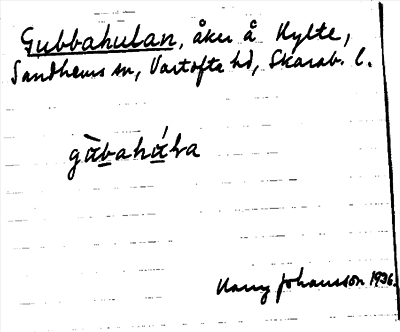 Gubbahulan, åker å Hylte,
Sandhems sn, Vartofte hd, Skarab. l.
Harry Johansson 1936.